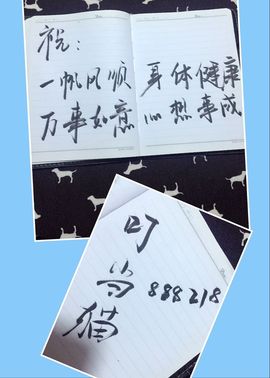 祝：
一帆风顺 身体健康
万事如意 心想事成
叮
当 888218
猫